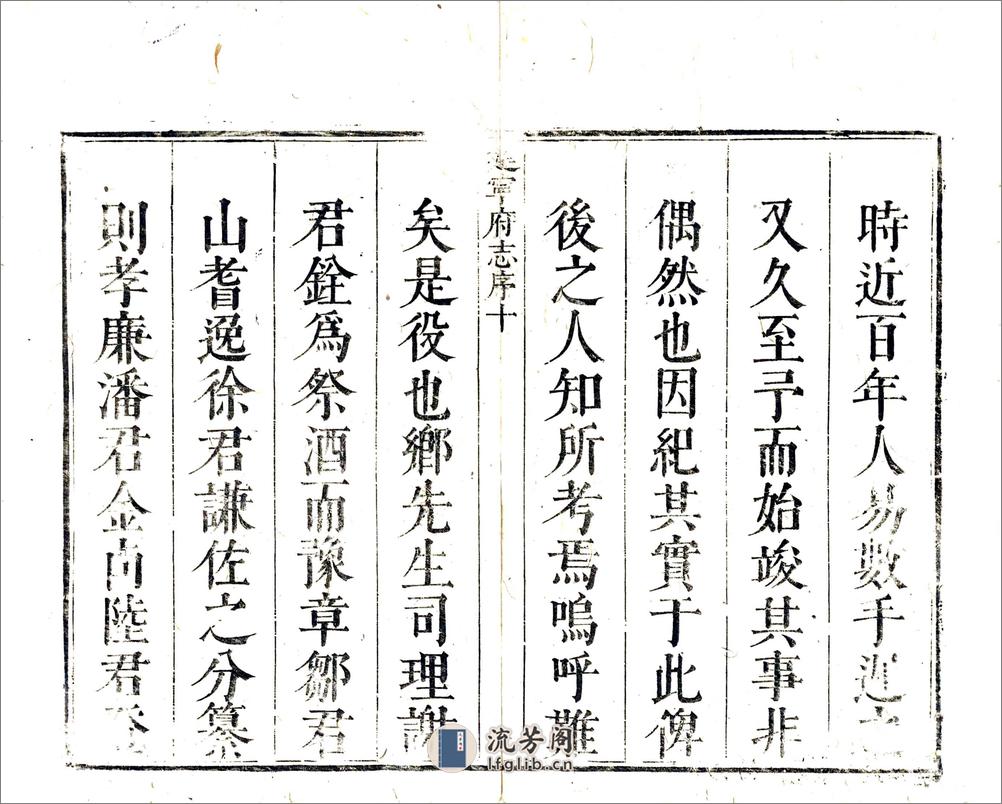 時近百年人易數手遲之
又久至予而始竣其事非
偶然也因紀其實于此俾
後之人知所考焉嗚呼難
建寧府志序十
矣是役也鄉先生司理謝
君銓爲祭酒而豫章鄒君
山耆逸徐君謙佐之分纂
則孝廉潘君金卣陸君登
流芳阁
lfglib.cn